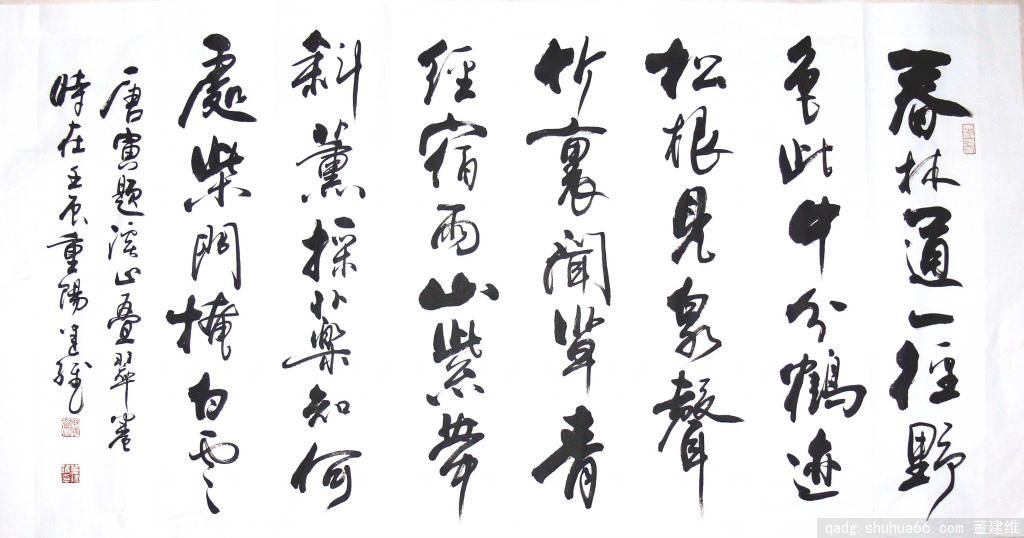 春林通一径野
色此中分鶴迹
松根見泉聲
竹裏聞草青
經宿雨山紫帶
斜薰採藥知何
處柴門掩白雲
唐寅題溪山疊翠卷
時在壬辰重陽建維
qadg.shuhua66.com 董建维